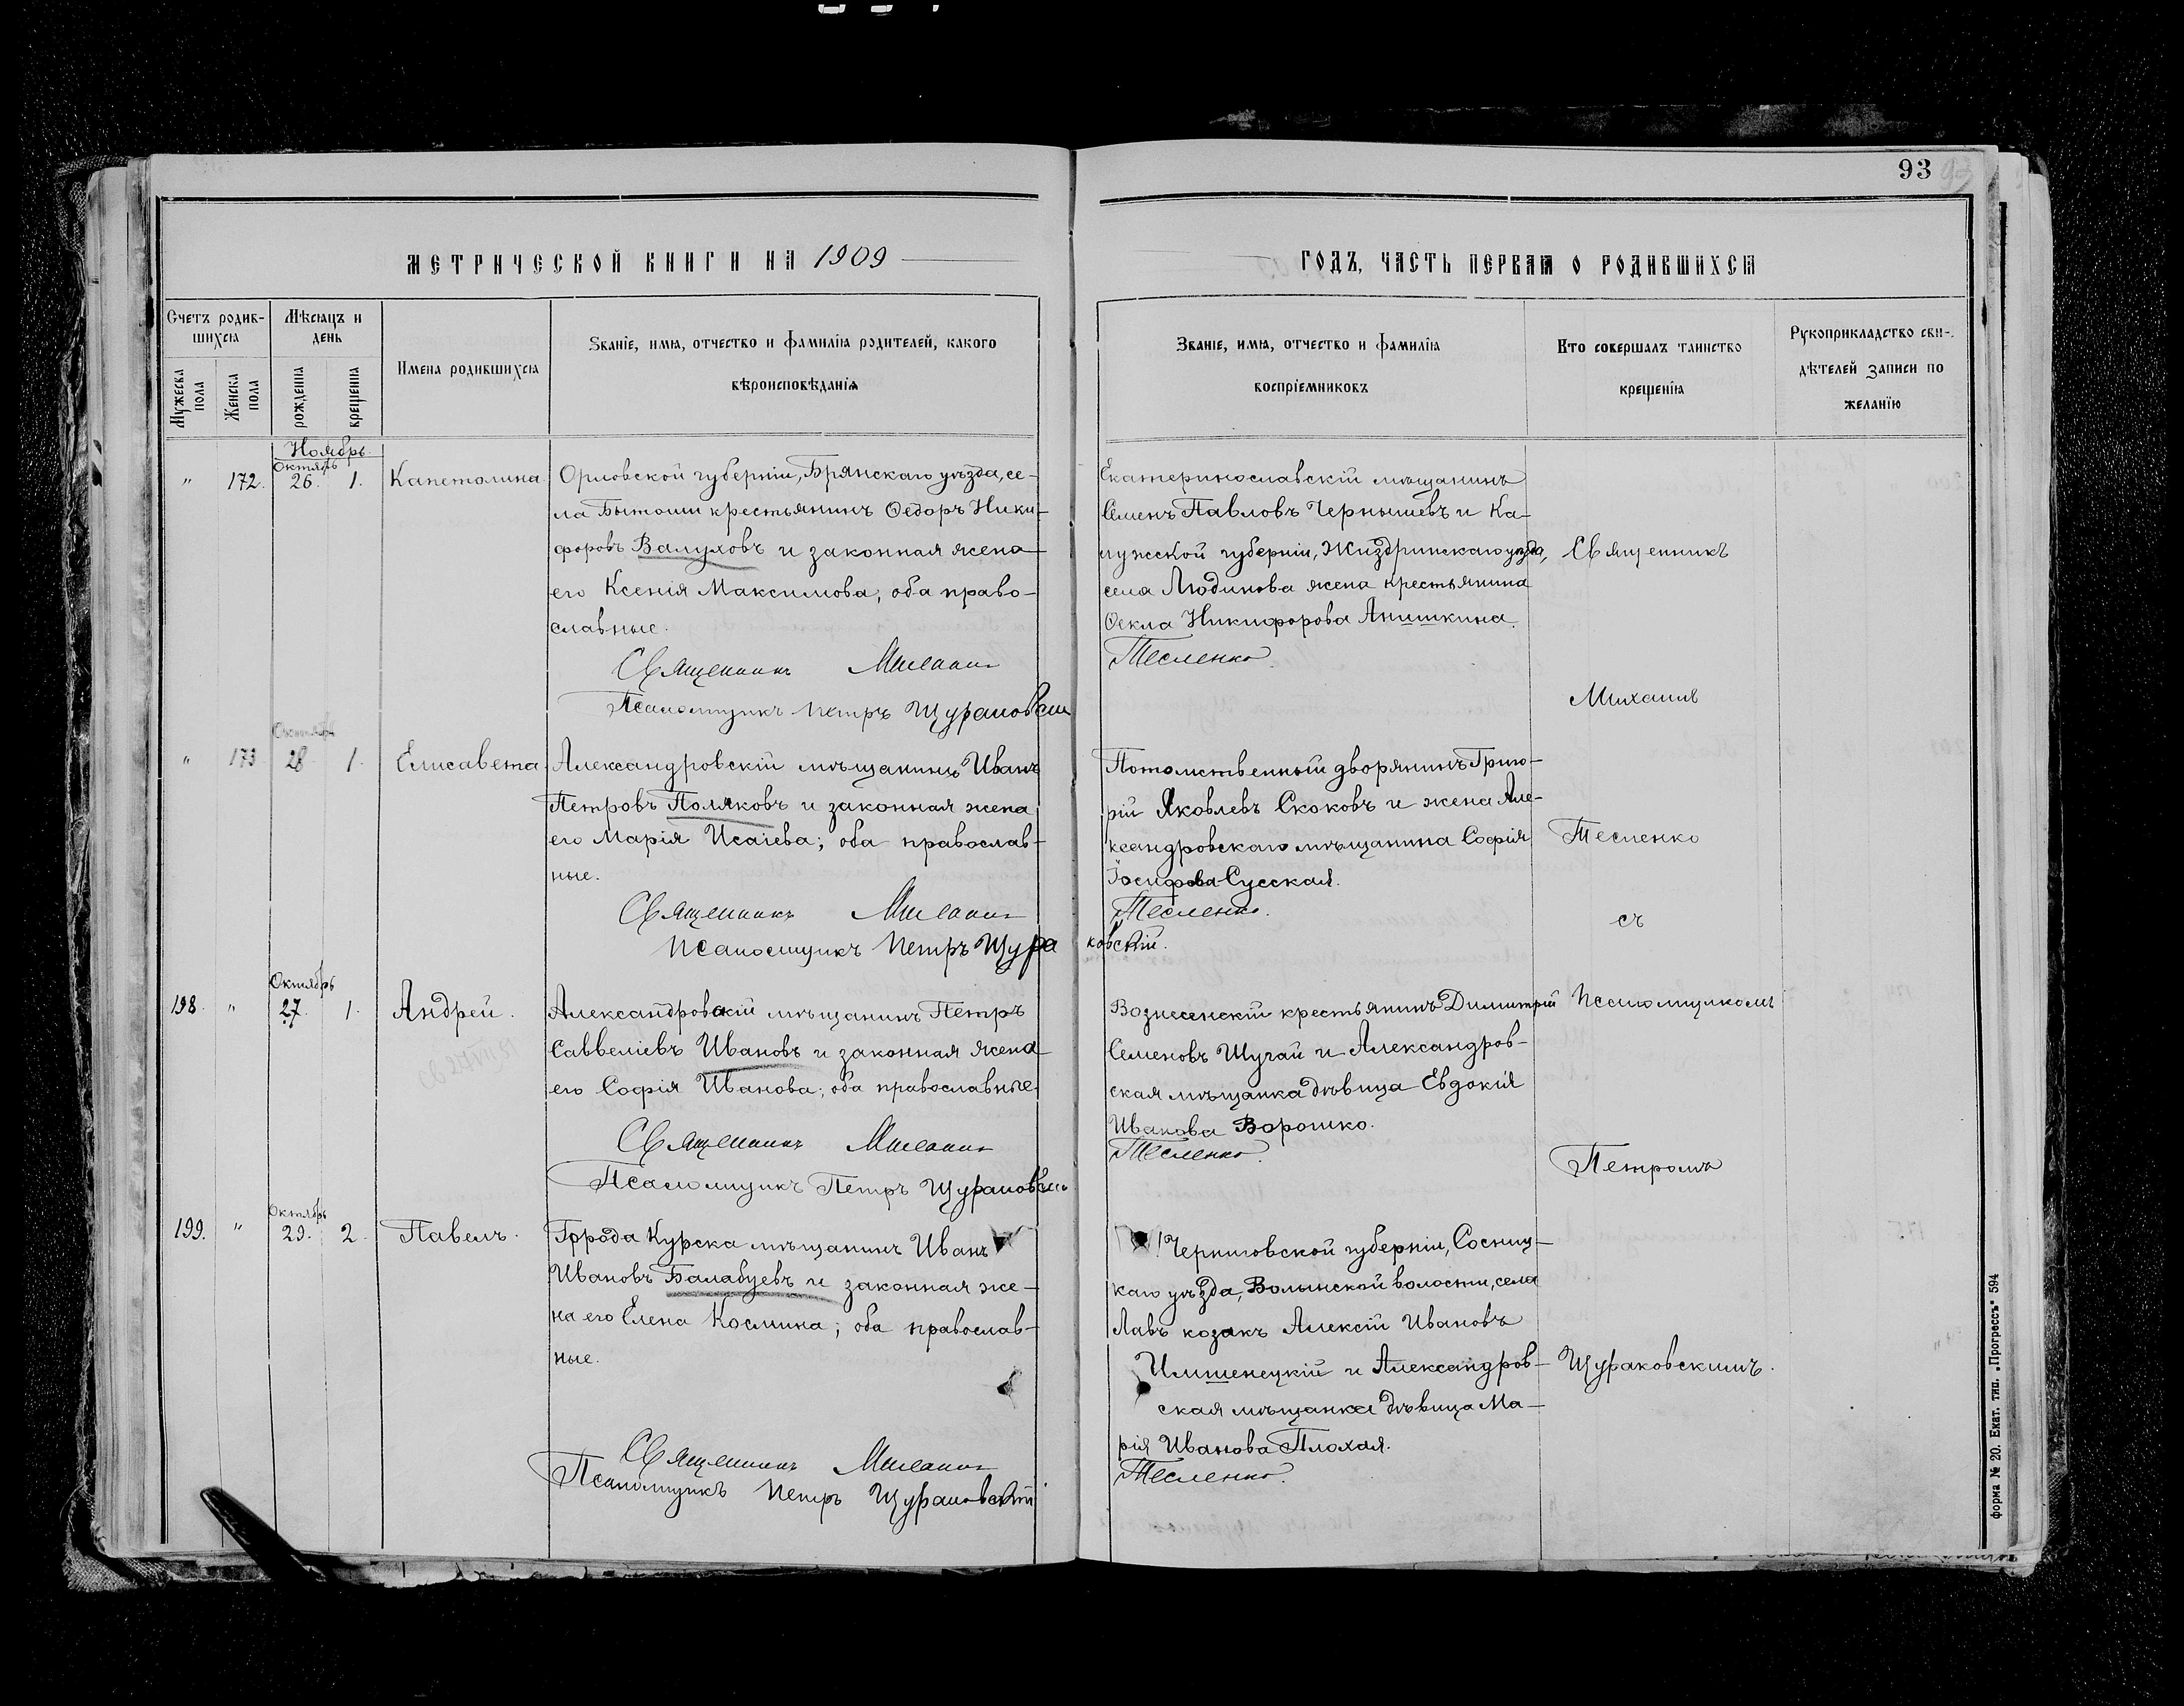 93
МЕТРИЧЕСКОЙ КНИГИ НА 1909
ГОДЪ, ЧАСТЬ ПЕРВАЯ О РОДИВШИХСЯ
Счетъ родив-
шихся
Мужеска пола
Женска пола
Мѣсяцъ и
день
рожденія
крещенія
Имена родившихся
Званіе, имя, отчество и фамилія родителей, какого
вѣроисповѣданія
Званіе, имя, отчество и фамилія
воспріемниковъ
Кто совершалъ таинство
крещенія
Рукоприкладство сви-
дѣтелей записи по
желанію
Ноябрь.
Октябрь
" 172. 26. 1. Капетолина
Орловской губерніи, Брянскаго уѣзда, се-
ла Бытоши крестьянинъ Ѳедоръ Ники-
форовъ Валуховъ и законная жена
его Ксенія Максимова; оба право-
славные.
Священникъ Михаилъ
Псаломщикъ Петръ Щураковскій
Екатеринославскій мѣщанинъ
Семенъ Павловъ Чернышевъ и Ка-
лужской губерніи, Жиздринскаго уѣзда,
села Людинова жена крестьянина
Ѳекла Никифорова Анишкина.
Тесленко.
Октября
" 173 28 1. Елисавета
Александровскій мѣщанинъ Иванъ
Петровъ Поляковъ и законная жена
его Марія Исаіева; оба православ-
ные.
Священникъ Михаилъ
Псаломщикъ Петръ Щура
Потомственный дворянинъ Григо-
рій Яковлевъ Скоковъ и жена Але-
ксандровскаго мѣщанина Софія
Іосифова Сусская.
Тесленко.
ковскій.
Октябрь
198. " 27. 1. Андрей.
Александровскій мѣщанинъ Петръ
Саввеліевъ Ивановъ и законная жена
его Софія Иванова; оба православные
Священникъ Михаилъ
Псаломщикъ Петръ Щураковскій
Вознесенскій крестьянинъ Димитрій
Семеновъ Шугай и Александров-
ская мѣщанка дѣвица Евдокія
Иванова Ворошко.
Тесленко.
Октябрь
199. " 29. 2. Павелъ.
Города Курска мѣщанинъ Иванъ
Ивановъ Балабуевъ и законная же-
на его Елена Космина; оба православ-
ные.
Священникъ Михаилъ
Псаломщикъ Петръ Щураковскій
Черниговской губерніи, Сосниц-
каго уѣзда, Волынской волости, села
Лавъ козакъ Алексій Ивановъ
Имшенецкій и Александров-
ская мѣщанка дѣвица Ма-
рія Иванова Плохая.
Тесленко.
Священникъ
Михаилъ
Тесленко
съ
Псаломщикомъ
Петромъ
Щураковскимъ.
Форма № 20. Екат. тип. „Прогрессъ" 594